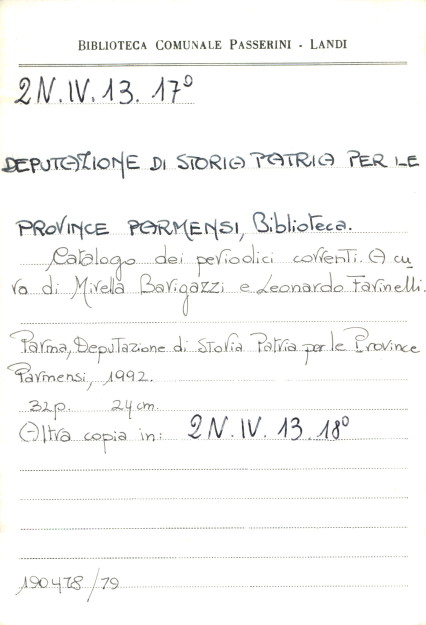 BIBLIOTECA COMUNALE PASSERINI - LANDI
2N.IV.13.17°
DEPUTAZIONE DI STORIA PATRIA PER LE
PROVINCE PARMENSI, Biblioteca.
Catalogo dei periodici correnti. A cu
ra di Mirella Barigazzi e Leonardo Farinelli.
Parma, Deputazione di Storia Patria per le Province
Parmensi, 1992.
32p. 24cm.
Altra copia in: 2N.IV.13.18°
190478/79